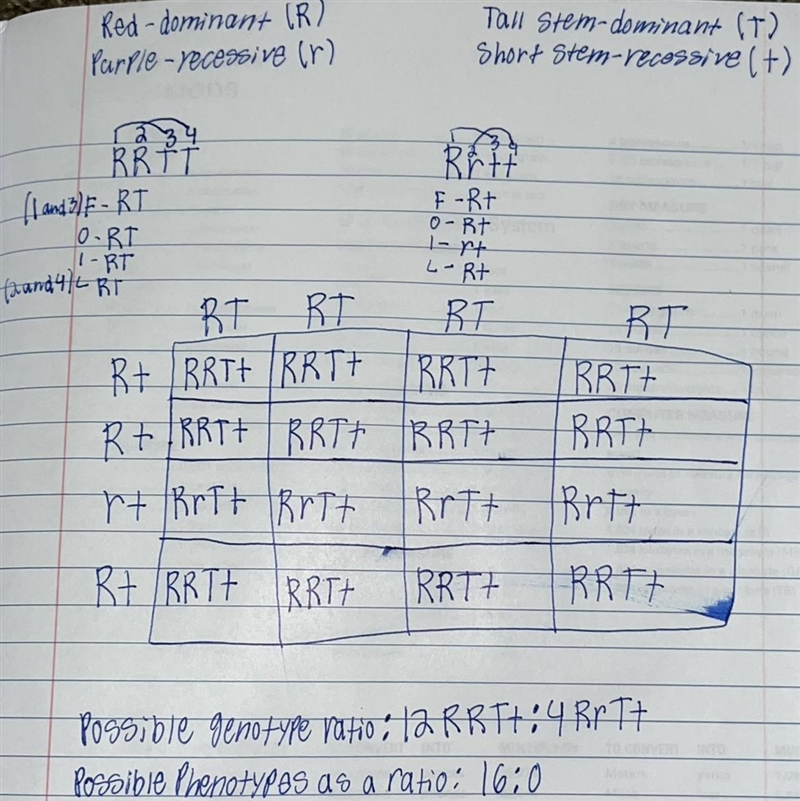 Red-dominant (R)
Purple-recessive (r)
Tall Stem-dominant (T)
Short Stem-recessive (t)
1 2 3 4
RRTT
(1 and 3) F - RT
O - RT
I - RT
(2 and 4) L - RT
1 2 3 4
Rrtt
F - Rt
O - Rt
I - rt
L - Rt
RT RT RT RT
Rt RRTt RRTt RRTt RRTt
Rt RRTt RRTt RRTt RRTt
rt RrTt RrTt RrTt RrTt
Rt RRTt RRTt RRTt RRTt
Possible genotype ratio: 12 RRTt : 4 RrTt
Possible Phenotypes as a ratio: 16:0